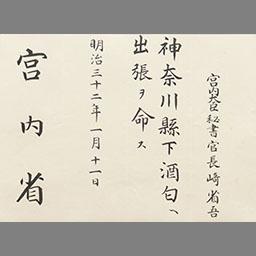 宮内大臣秘書官長崎省吾
神奈川縣下酒匂ヘ
出張ヲ命ス
明治三十二年一月十一日
宮内省